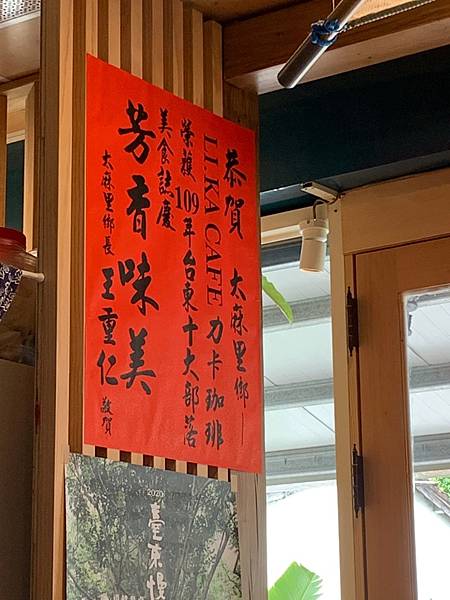 恭賀 太麻里鄉—
LIKA CAFE 力卡珈琲
榮獲109年台東十大部落
美食誌慶
芳香味美
太麻里鄉長 王重仁 敬賀
2020
臺東慢